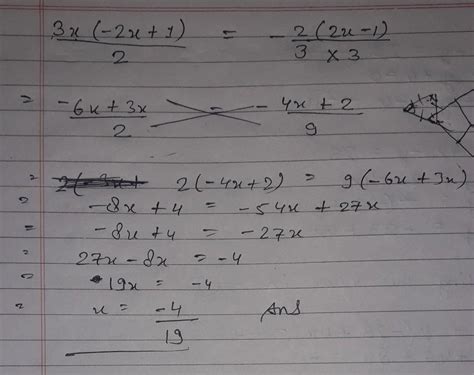 3x (-2x + 1) / 2 = - 2 (2x - 1) / 3 x 3
= -6x + 3x / 2 = - 4x + 2 / 9
= 2(-4x + 2) = 9(-6x + 3x)
= -8x + 4 = -54x + 27x
= -8x + 4 = -27x
= 27x - 8x = -4
= 19x = -4
= x = -4 / 19 Ans